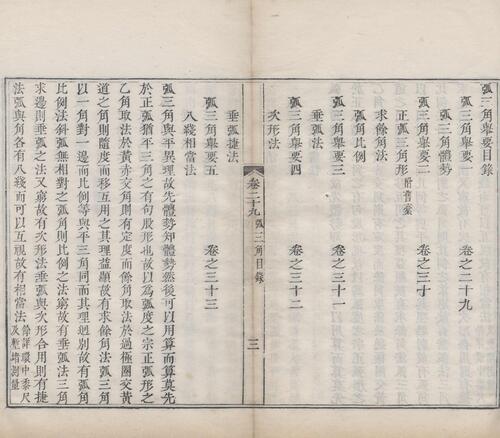 弧三角舉要目錄
弧三角舉要一　卷之二十九
弧三角體勢
弧三角舉要二　卷之三十
正弧三角形附舊案
求餘角法
弧角比例
弧三角舉要三　卷之三十一
垂弧法
弧三角舉要四　卷之三十二
次形法
卷二十九　弧三角目錄　三
垂弧捷法
弧三角舉要五　卷之三十三
八線相當法
弧三角與平異理故先體勢知體勢然後可以用算而算莫先
於正弧猶平三角之有句股形也故以為弧度之宗正弧形之
乙角取法於黃赤交角則有定度而餘角取法於過極圈交黃
道之角則隨度而移互用之其理益顯故有求餘角法弧三角
以一角對一邊而比例等與平三角同而其理迥別故有弧角
比例法斜弧無相對之弧角則比例之法窮故有垂弧法三角
求邊則垂弧之法又窮故有次形法垂弧與次形合用則有捷
法弧與角各有八線而可以互視故有相當法餘詳環中黍尺
及塹堵測量